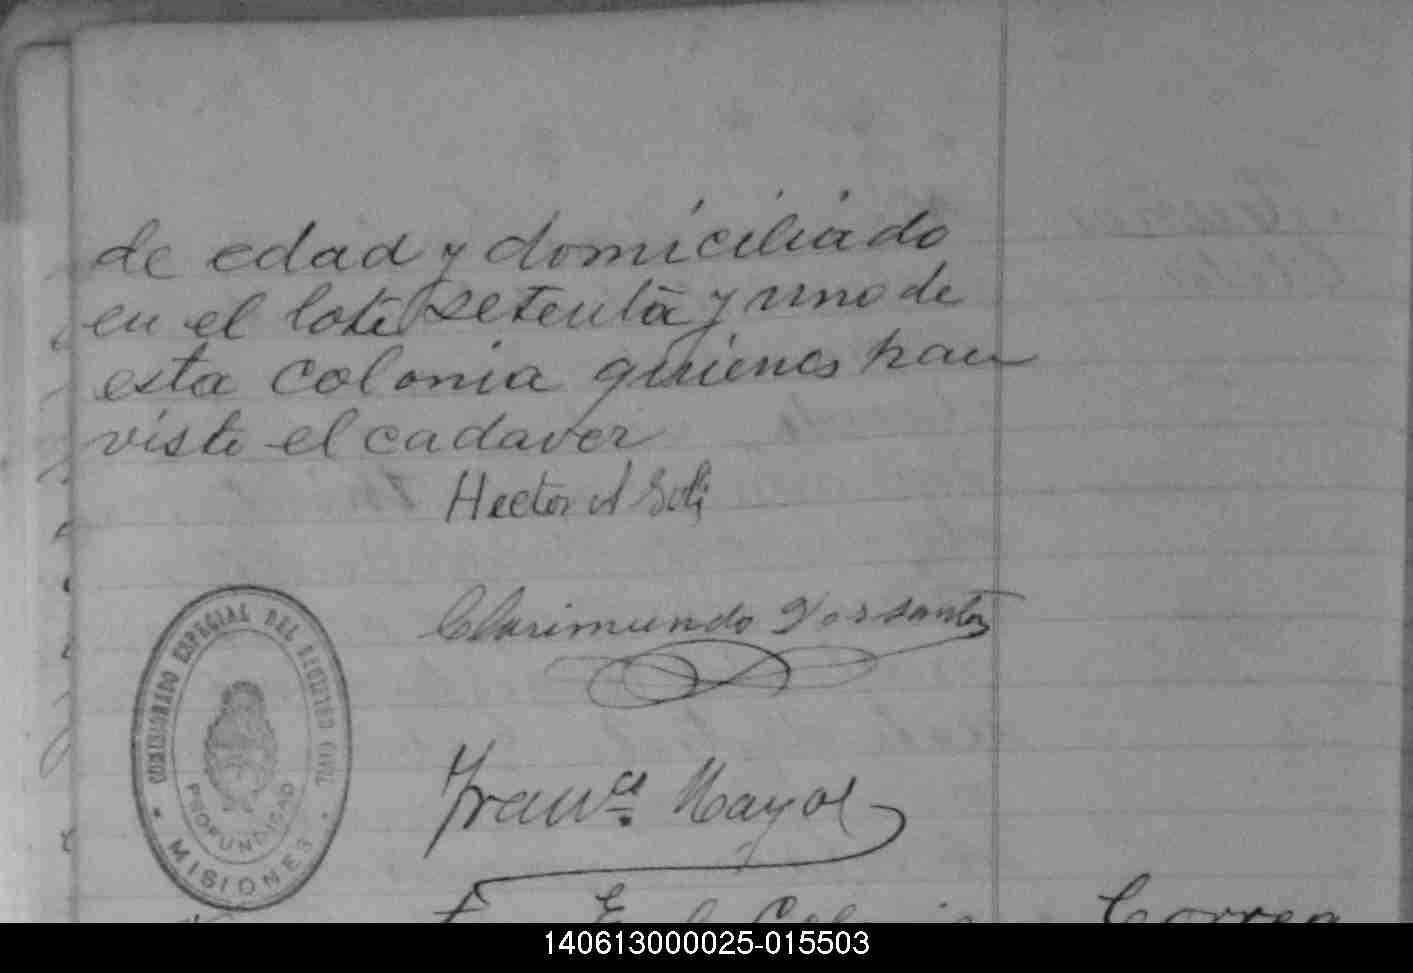 de edad y domiciliado
en el lote setenta y uno de
esta colonia quienes han
visto el cadaver
Hector A Soli
Clarimundo Dos santos
COMISIONADO ESPECIAL DEL REGISTRO CIVIL
PROFUNDIDAD
MISIONES
Franco. Mayol
En la Colonia Correa
140613000025-015503